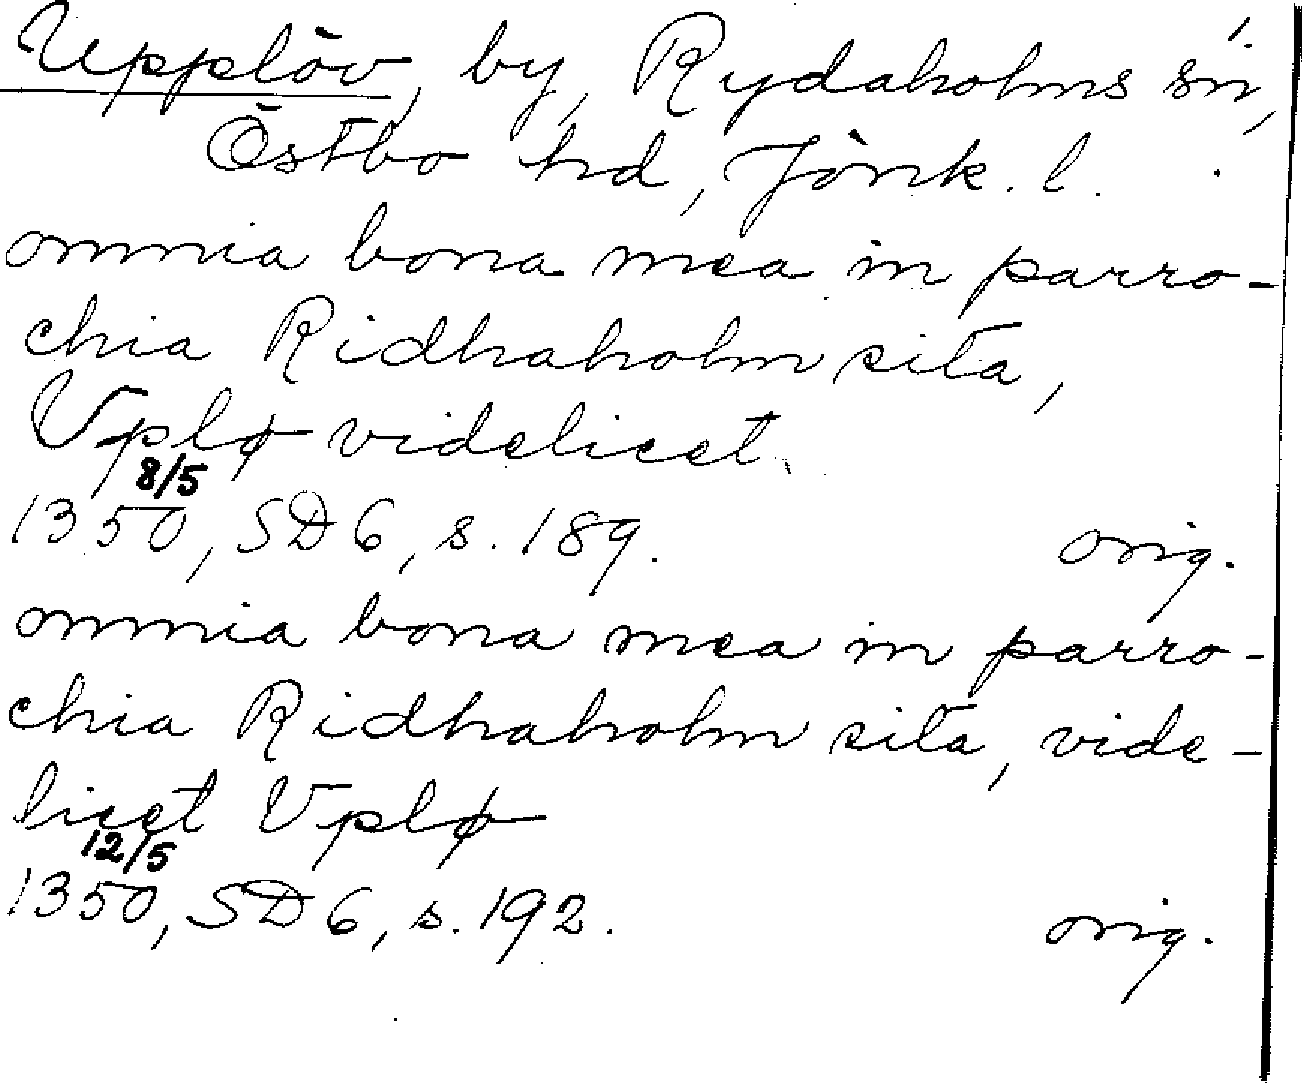 Upplöv, by, Rydaholms sn,
Östbo hd, Jönk. l.
omnia bona mea in parro-
chia Ridhaholm sita,
Vplø videlicet.
8/5
1350, SD 6, s. 189. orig.
omnia bona mea in parro-
chia Ridhaholm sita, vide-
licet Vplø
12/5
1350, SD 6, s. 192. orig.